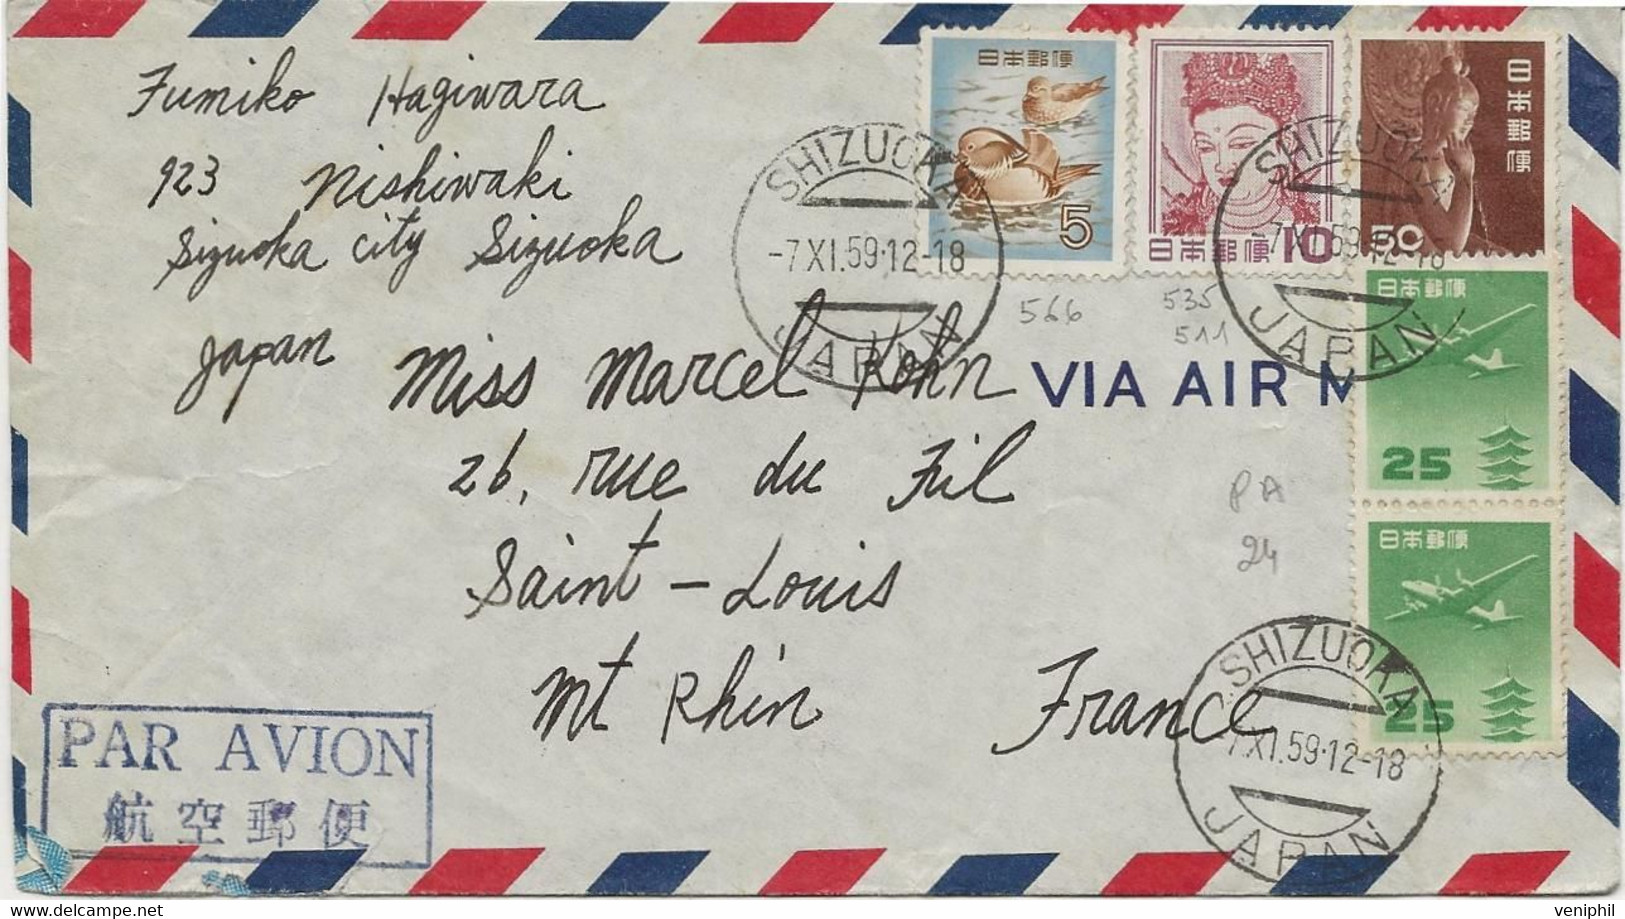 Fumiko Hagiwara
923 Nishiwaki
Sizuoka city Sizuoka
Japan
日本郵便
5
日本郵便 10
日本郵便
50
SHIZUOKA
-7.XI.59.12-18
JAPAN
SHIZUOKA
-7.XI.59.12-18
JAPAN
566
535
511
VIA AIR M
Miss Marcel Kohn
26, rue du Fil
Saint-Louis
Mt Rhin France
日本郵便
25
PA
24
日本郵便
25
SHIZUOKA
-7.XI.59.12-18
JAPAN
PAR AVION
航空郵便
veniphil